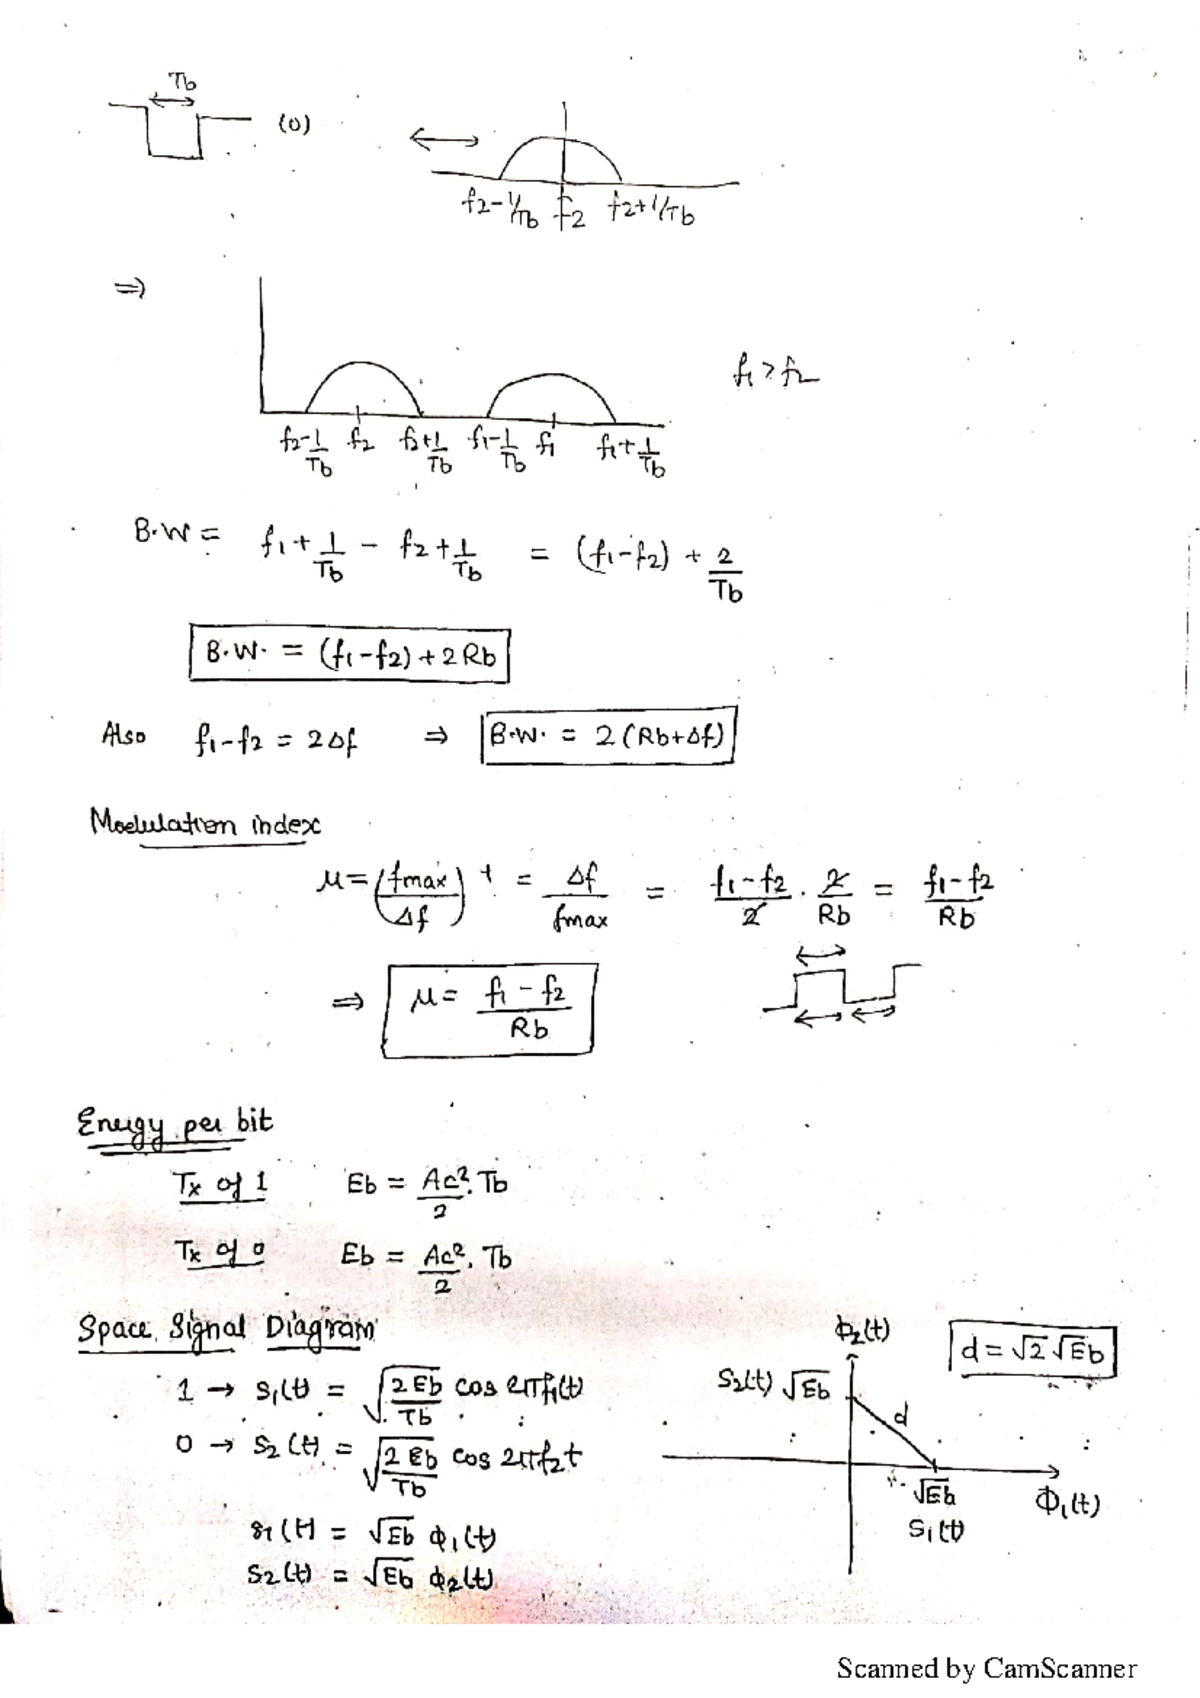 Tb
(0)
f2-1/Tb f2 f2+1/Tb
⇒
f1 > f2
f2-1/Tb f2 f2+1/Tb f1-1/Tb f1 f1+1/Tb
B.W = f1 + 1/Tb - f2 + 1/Tb = (f1-f2) + 2/Tb
B.W. = (f1-f2) + 2Rb
Also f1-f2 = 2Δf ⇒ B.W. = 2(Rb+Δf)
Modulation index
μ = (fmax/Δf) = Δf/fmax = f1-f2/2 . 2/Rb = f1-f2/Rb
⇒ μ = f1-f2/Rb
Energy per bit
Tx of 1 Eb = Ac²/2 . Tb
Tx of 0 Eb = Ac²/2 . Tb
Space Signal Diagram
1 → s1(t) = √2Eb/Tb cos 2πf1(t)
0 → s2(t) = √2Eb/Tb cos 2πf2t
s1(t) = √Eb ϕ1(t)
s2(t) = √Eb ϕ2(t)
ϕ2(t)
d = √2 √Eb
s2(t) √Eb
d
√Eb
s1(t)
ϕ1(t)
Scanned by CamScanner